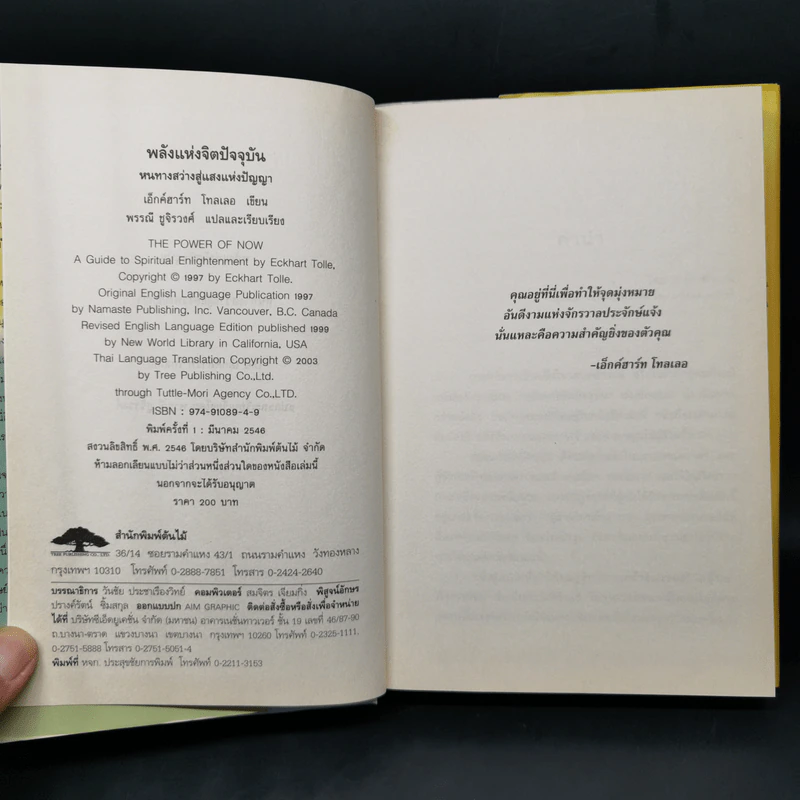 พลังแห่งจิตปัจจุบัน
หนทางสว่างสู่แสงแห่งปัญญา
เอ็กค์ฮาร์ท โทลเลอ เขียน
พรรณี ชูจิรวงศ์ แปลและเรียบเรียง
THE POWER OF NOW
A Guide to Spiritual Enlightenment by Eckhart Tolle,
Copyright © 1997 by Eckhart Tolle.
Original English Language Publication 1997
by Namaste Publishing, Inc. Vancouver, B.C. Canada
Revised English Language Edition published 1999
by New World Library in California, USA
Thai Language Translation Copyright © 2003
by Tree Publishing Co.,Ltd.
through Tuttle-Mori Agency Co.,LTD.
ISBN : 974-91089-4-9
พิมพ์ครั้งที่ 1 : มีนาคม 2546
สงวนลิขสิทธิ์ พ.ศ. 2546 โดยบริษัทสำนักพิมพ์ต้นไม้ จำกัด
ห้ามลอกเลียนแบบไม่ว่าส่วนหนึ่งส่วนใดของหนังสือเล่มนี้
นอกจากจะได้รับอนุญาต
ราคา 200 บาท
สำนักพิมพ์ต้นไม้
TREE PUBLISHING CO., LTD.
36/14 ซอยรามคำแหง 43/1 ถนนรามคำแหง วังทองหลาง
กรุงเทพฯ 10310 โทรศัพท์ 0-2888-7851 โทรสาร 0-2424-2640
บรรณาธิการ วันชัย ประชาเรืองวิทย์ คอมพิวเตอร์ สมจิตร เจียมกิ่ง พิสูจน์อักษร
ปรางค์รัตน์ ซิ้มสกุล ออกแบบปก AIM GRAPHIC ติดต่อสั่งซื้อหรือสั่งเพื่อจำหน่าย
ได้ที่ บริษัทซีเอ็ดยูเคชั่น จำกัด (มหาชน) อาคารเนชั่นทาวเวอร์ ชั้น 19 เลขที่ 46/87-90
ถ.บางนา-ตราด แขวงบางนา เขตบางนา กรุงเทพฯ 10260 โทรศัพท์ 0-2325-1111,
0-2751-5888 โทรสาร 0-2751-5051-4
พิมพ์ที่ หจก. ประสุขชัยการพิมพ์ โทรศัพท์ 0-2211-3153
คุณอยู่ที่นี่เพื่อทำให้จุดมุ่งหมาย
อันดีงามแห่งจักรวาลประจักษ์แจ้ง
นั่นแหละคือความสำคัญยิ่งของตัวคุณ
-เอ็กค์ฮาร์ท โทลเลอ